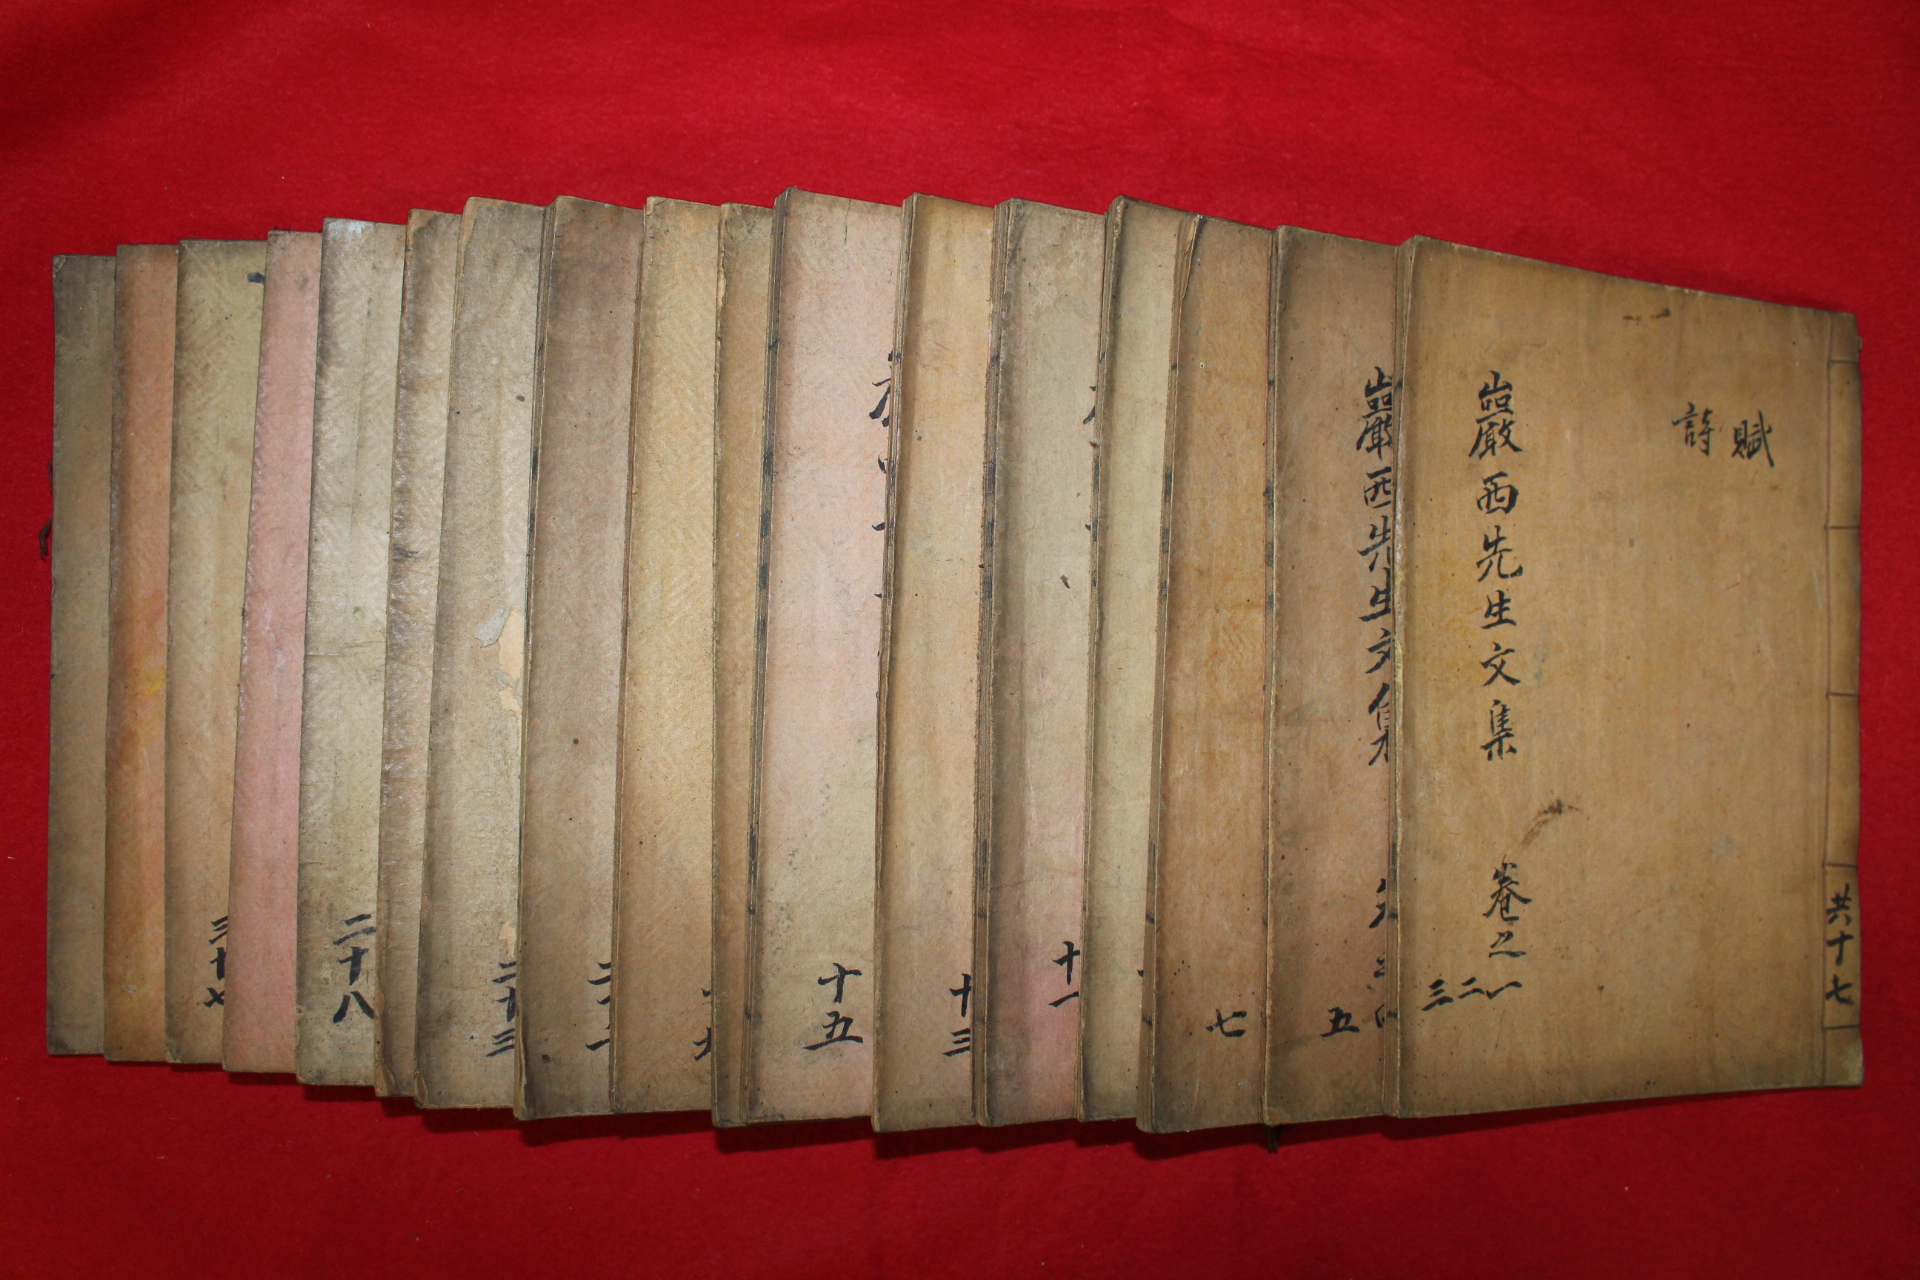 賦
詩
巖西先生文集 卷之一
二
三
共十七
巖西先生文集 卷之四
五
七
十一
十三
十五
二十三
二十八
三十七